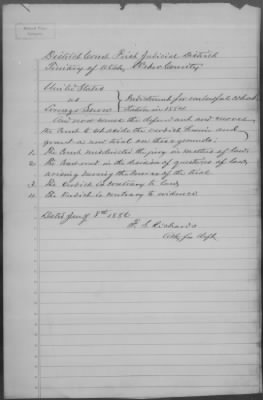 District Court First Judicial District
Territory of Utah, Weber County
United States
vs
Lorenzo Snow
Indictment for unlawful cohabi-
tation in 1884
And now comes the defendant and moves
the Court to set aside the verdict herein and
grant a new trial on these grounds:
1. The Court misdirected the jury in matters of law.
2. The Court erred in the decision of questions of law,
arising during the course of the trial
3. The Verdict is contrary to law,
4. The Verdict is contrary to evidence.
Dated Jany 8th 1886
F. S. Richards
Atty for Deft.